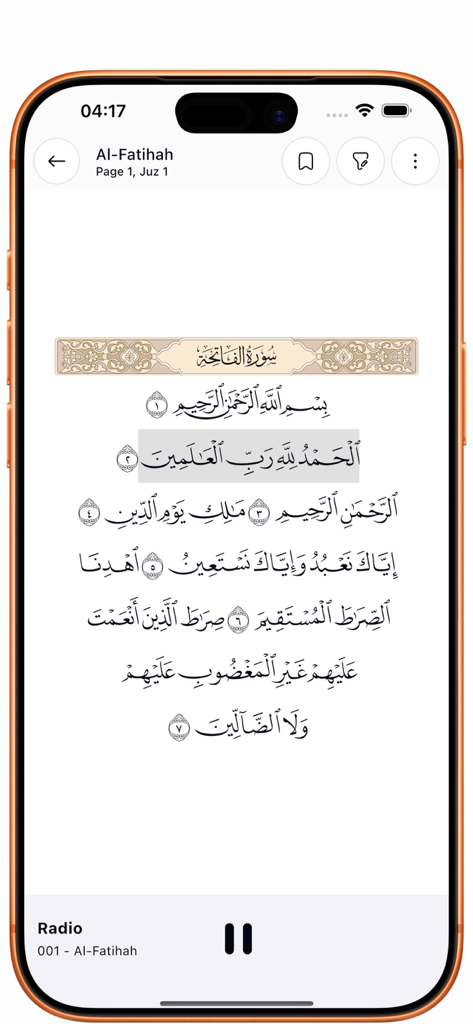 04:17
Al-Fatihah
Page 1, Juz 1
سُورَةُ الفَاتِحَةِ
بِسْمِ ٱللَّهِ ٱلرَّحْمَٰنِ ٱلرَّحِيمِ ١
ٱلْحَمْدُ لِلَّهِ رَبِّ ٱلْعَٰلَمِينَ ٢
ٱلرَّحْمَٰنِ ٱلرَّحِيمِ ٣ مَٰلِكِ يَوْمِ ٱلدِّينِ ٤
إِيَّاكَ نَعْبُدُ وَإِيَّاكَ نَسْتَعِينُ ٥ ٱهْدِنَا
ٱلصِّرَٰطَ ٱلْمُسْتَقِيمَ ٦ صِرَٰطَ ٱلَّذِينَ أَنْعَمْتَ
عَلَيْهِمْ غَيْرِ ٱلْمَغْضُوبِ عَلَيْهِمْ
وَلَا ٱلضَّآلِّينَ ٧
Radio
001 - Al-Fatihah